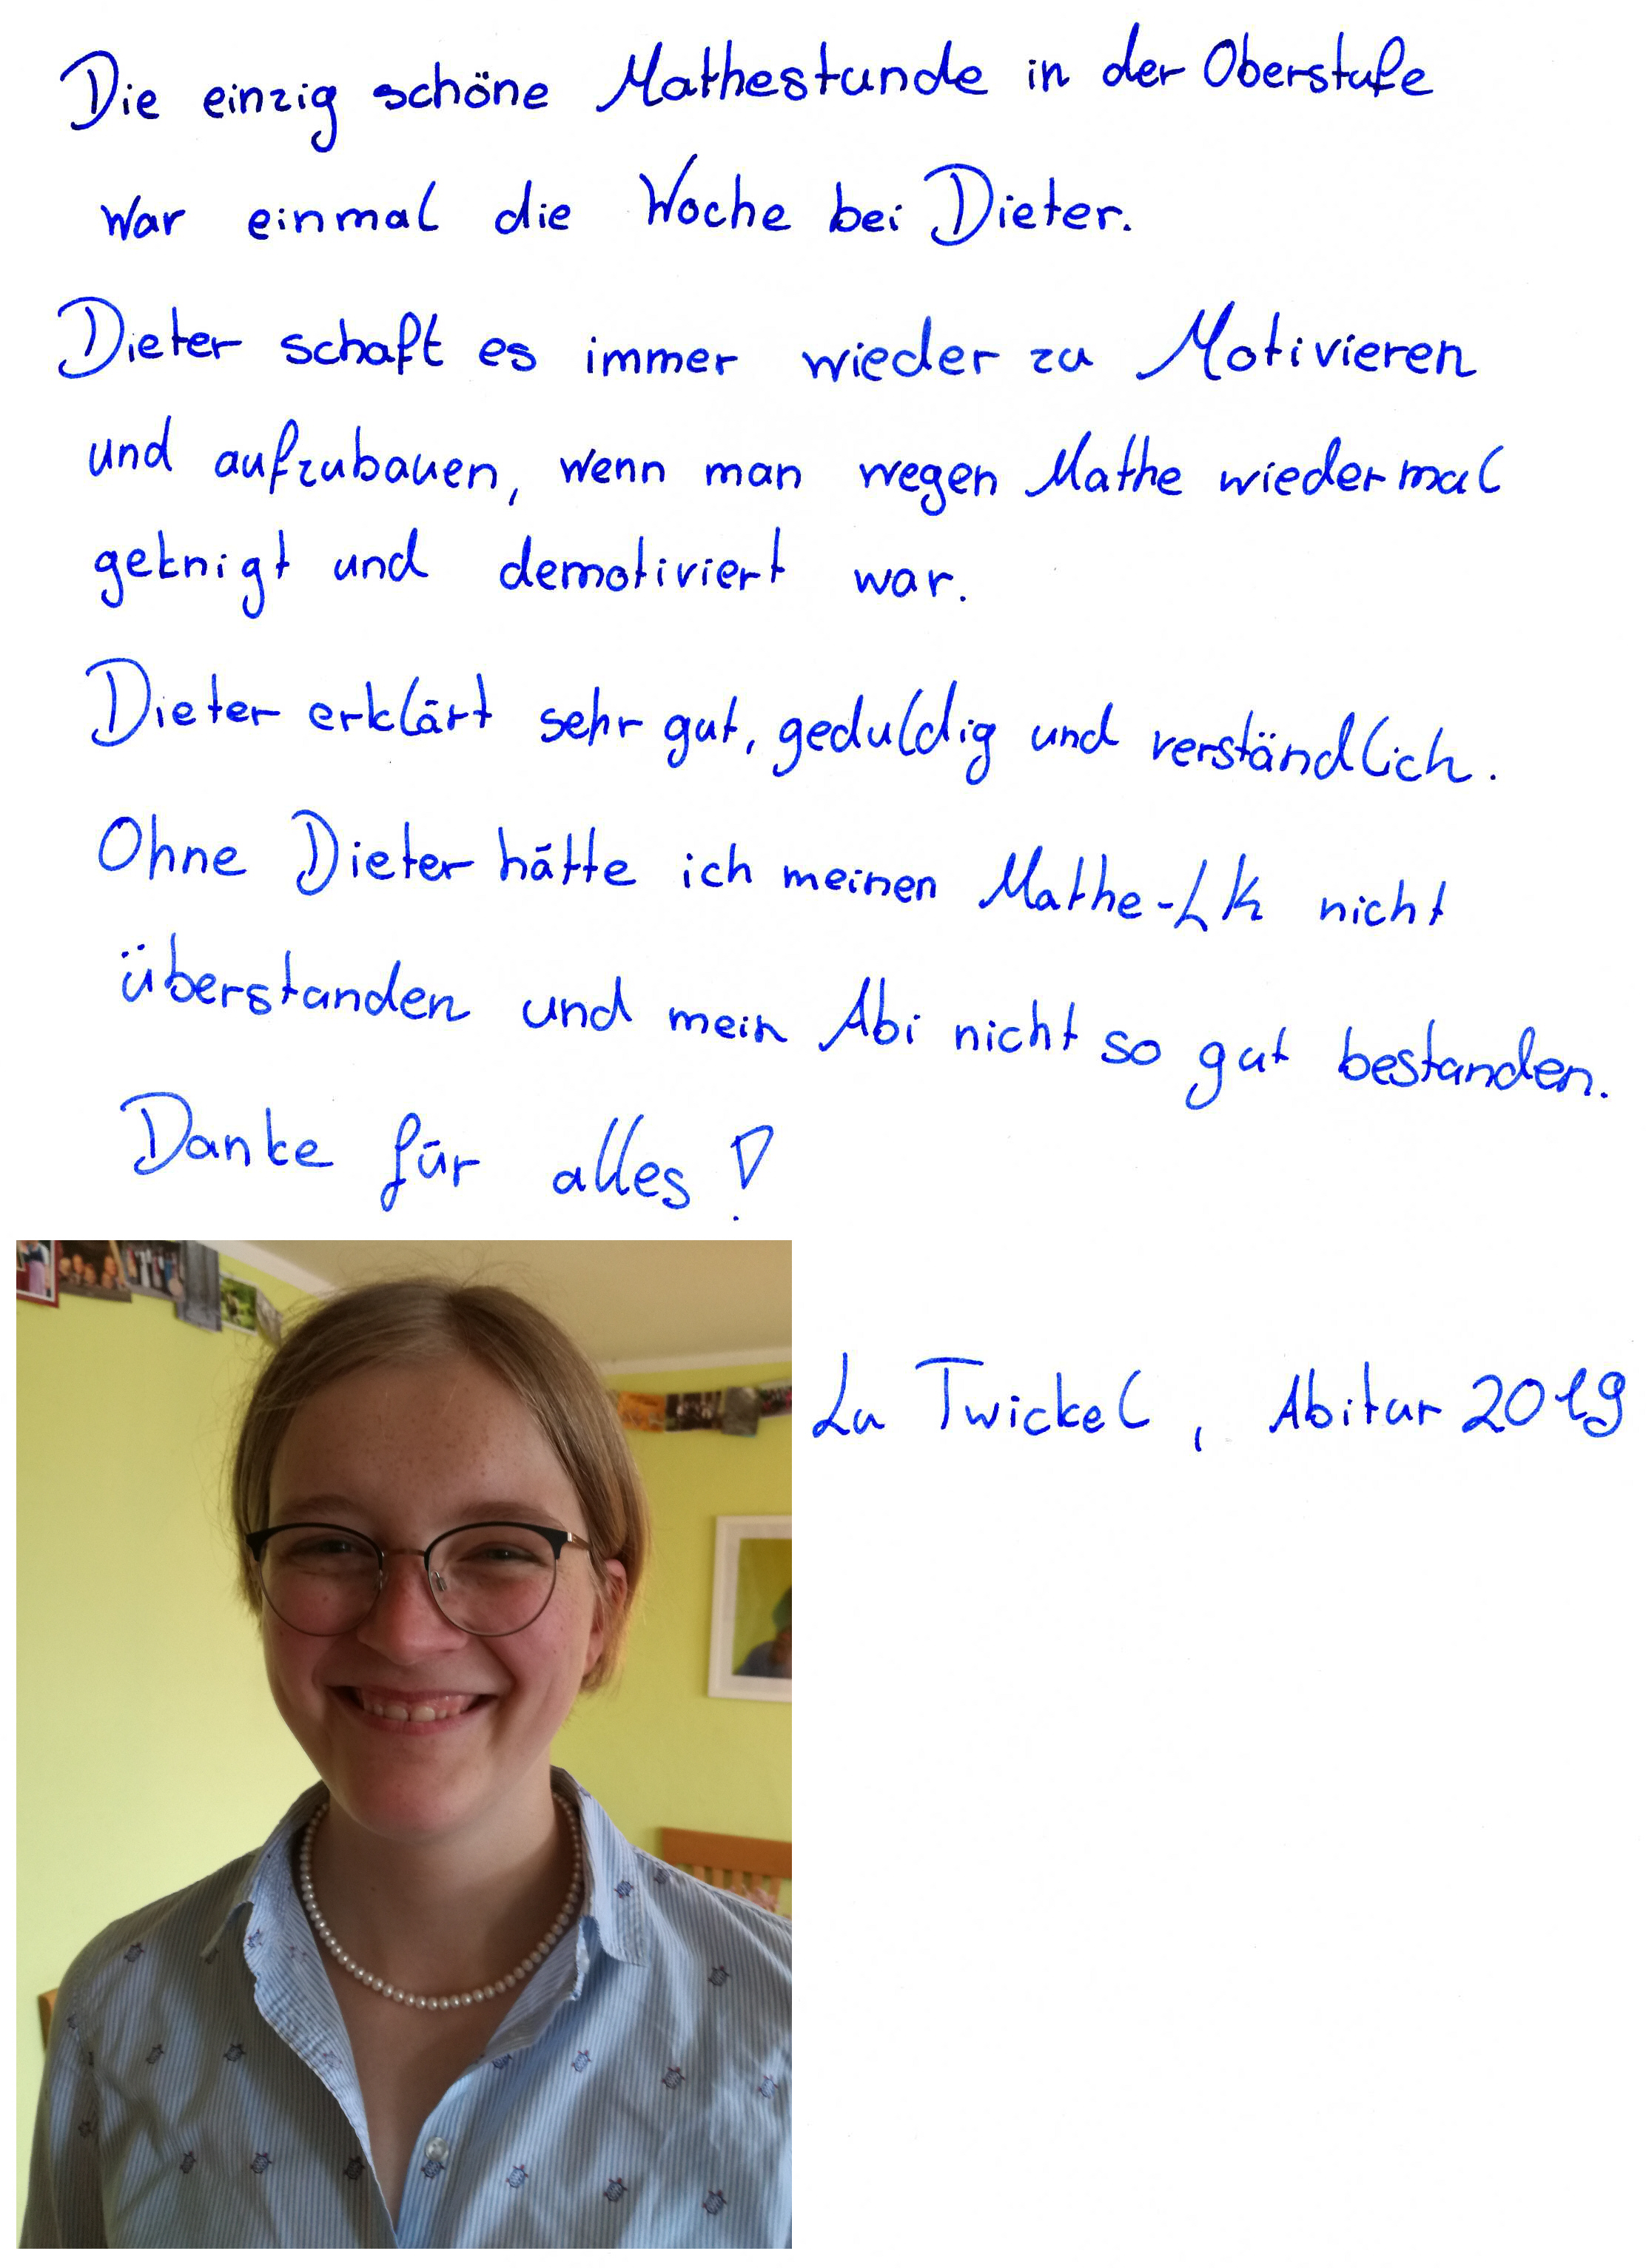 Die einzig schöne Mathestunde in der Oberstufe
war einmal die Woche bei Dieter.
Dieter schaft es immer wieder zu Motivieren
und aufzubauen, wenn man wegen Mathe wiedermal
geknigt und demotiviert war.
Dieter erklärt sehr gut, geduldig und verständlich.
Ohne Dieter hätte ich meinen Mathe-LK nicht
überstanden und mein Abi nicht so gut bestanden.
Danke für alles!
Lu Twickel, Abitur 2019